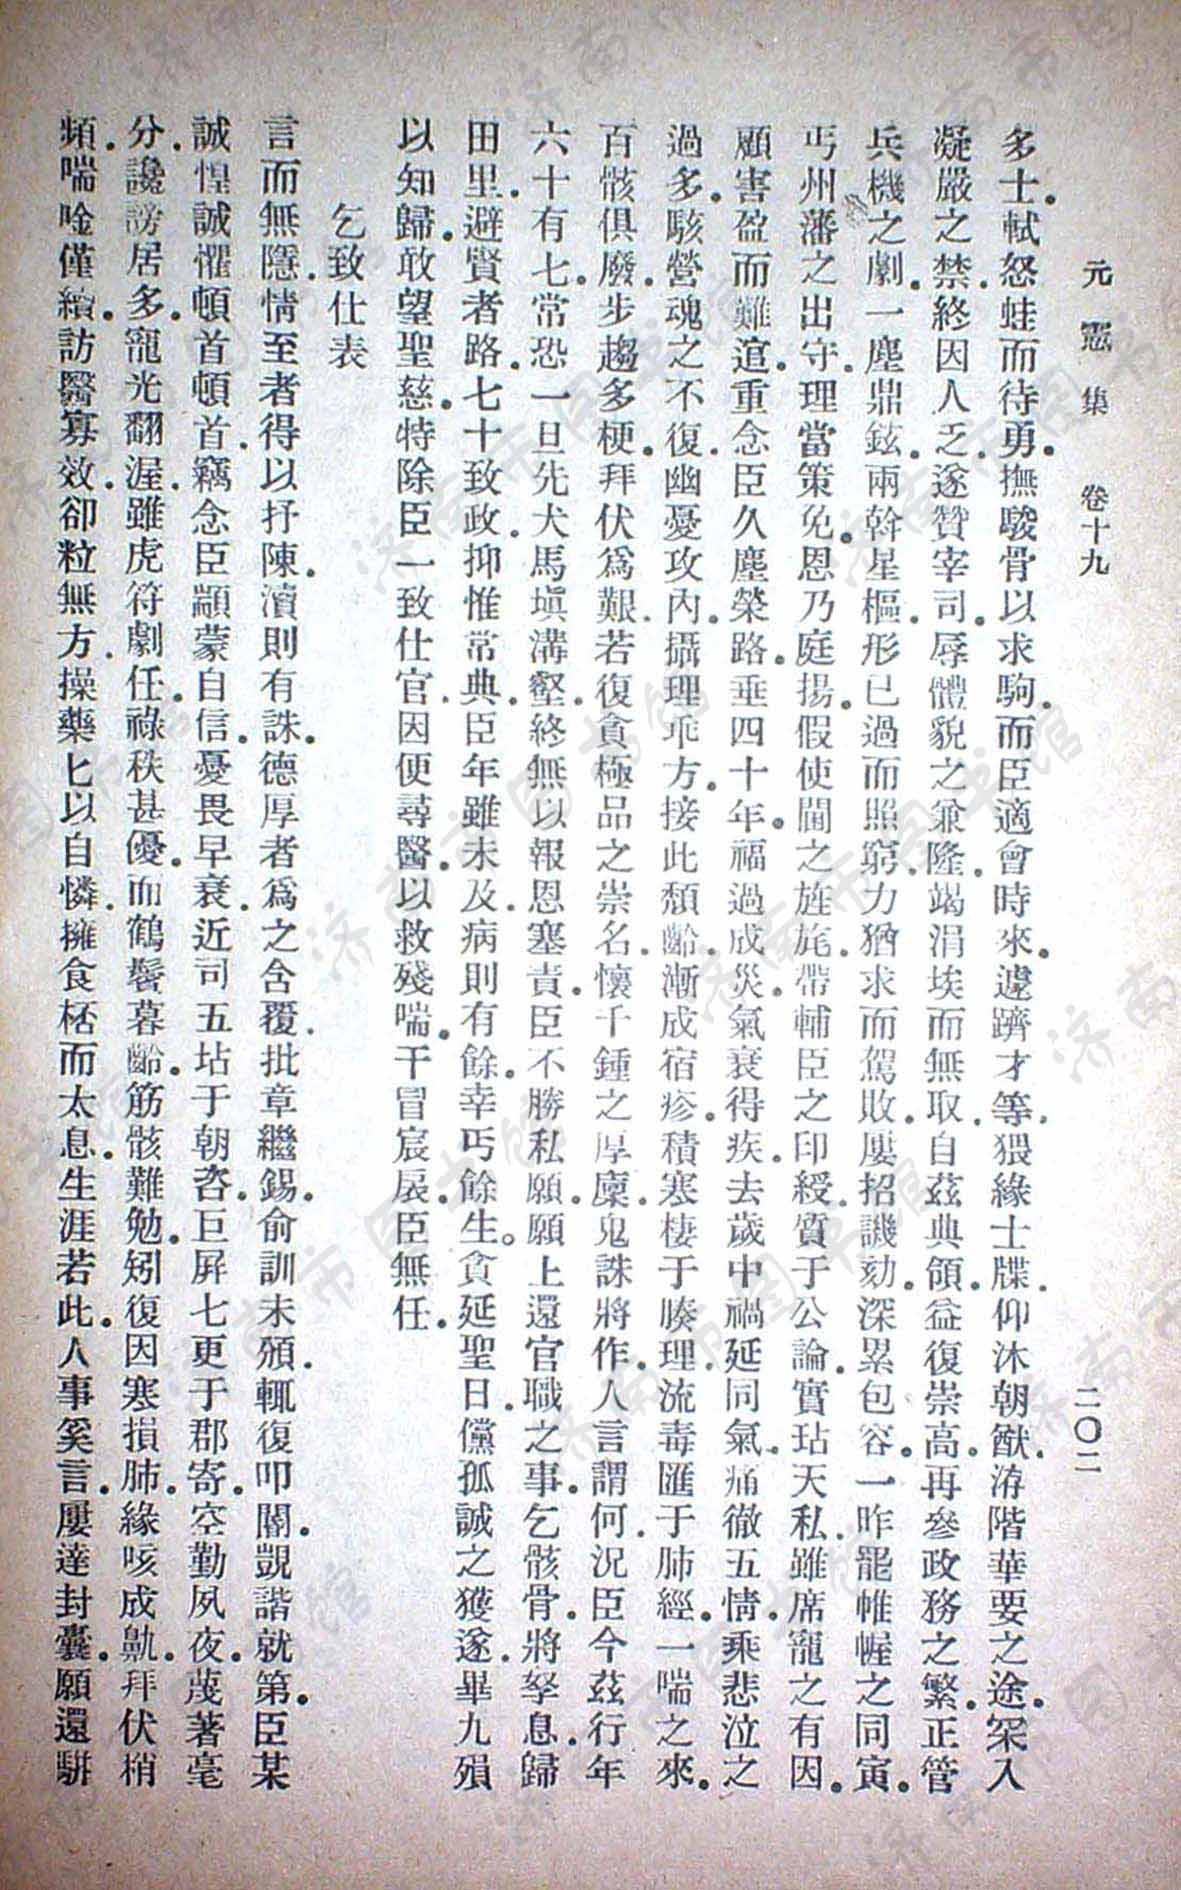 元憲集 卷十九 二〇二
多士軾怒蛙而待勇撫駿骨以求駒而臣適會時來遽躋才等猥緣士牒仰沐朝猷洊階華要之途罙入
凝嚴之禁終因人乏遂贊宰司辱體貌之兼隆竭涓埃而無取自茲典領益復崇高再參政務之繁正管
兵機之劇一塵鼎鉉兩斡星樞形已過而照窮力猶求而駕敗屢招譏劾深累包容一昨罷帷幄之同寅
丐州藩之出守理當策免恩乃庭揚假使閫之旌旄帶輔臣之印綬質于公論實玷天私雖席寵之有因
顧害盈而難逭重念臣久塵榮路垂四十年福過成災氣衰得疾去歲中禍延同氣痛徹五情乘悲泣之
過多駭營魂之不復幽憂攻內攝理乖方接此頹齡漸成宿疹積寒棲于腠理流毒匯于肺經一喘之來
百骸俱廢步趨多梗拜伏爲艱若復貪極品之崇名懷千鍾之厚廩鬼誅將作人言謂何況臣今茲行年
六十有七常恐一旦先犬馬塡溝壑終無以報恩塞責臣不勝私願願上還官職之事乞骸骨將孥息歸
田里避賢者路七十致政抑惟常典臣年雖未及病則有餘幸丐餘生貪延聖日儻孤誠之獲遂畢九殞
以知歸敢望聖慈特除臣一致仕官因便尋醫以救殘喘干冒宸扆臣無任
乞致仕表
言而無隱情至者得以抒陳瀆則有誅德厚者爲之含覆批章繼錫俞訓未頒輒復叩閽覬諧就第臣某
誠惶誠懼頓首頓首竊念臣顓蒙自信憂畏早衰近司五玷于朝咨巨屛七更于郡寄空勤夙夜蔑著毫
分讒謗居多寵光翻渥雖虎符劇任祿秩甚優而鶴鬢暮齡筋骸難勉矧復因寒損肺緣咳成鼽拜伏稍
頻喘唫僅續訪醫寡效卻粒無方操藥匕以自憐擁食桮而太息生涯若此人事奚言屢達封囊願還駢